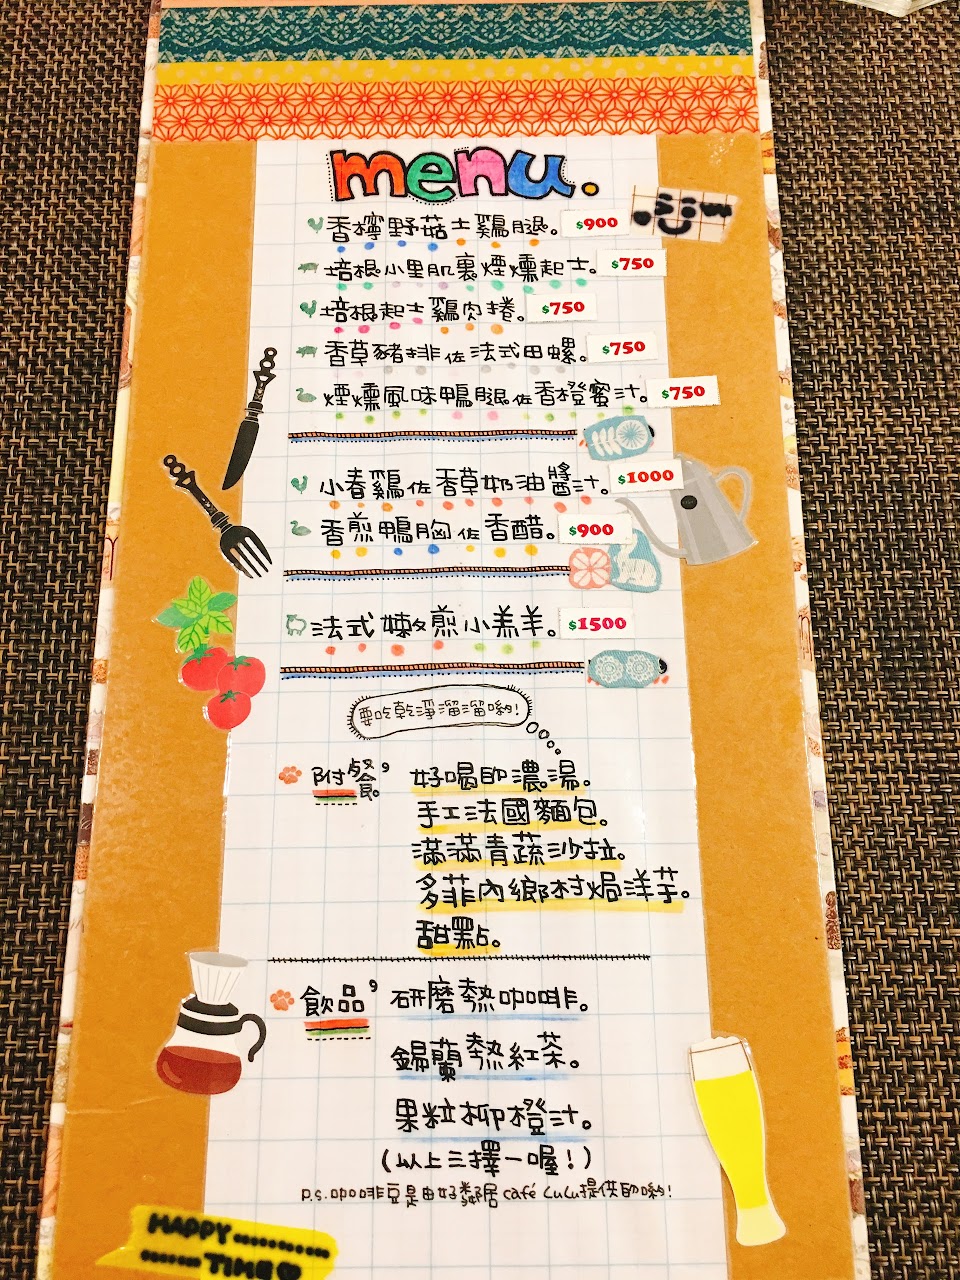 menu.
香檸野菇土鷄腿。 $900
培根小里肌裹煙燻起士。 $750
培根起士鷄肉捲。 $750
香草豬排佐法式田螺。 $750
煙燻風味鴨腿佐香橙蜜汁。 $750
小春鷄佐香草奶油醬汁。 $1000
香煎鴨胸佐香醋。 $900
法式嫩煎小羔羊。 $1500
要吃乾淨溜溜喲!
附餐, 好喝的濃湯。
手工法國麵包。
滿滿青蔬沙拉。
多菲內鄉村焗洋芋。
甜點。
飲品, 研磨熱咖啡。
錫蘭熱紅茶。
果粒柳橙汁。
(以上三擇一喔!)
p.s.咖啡豆是由好鄰居café LuLu提供的喲!
HAPPY
TIME